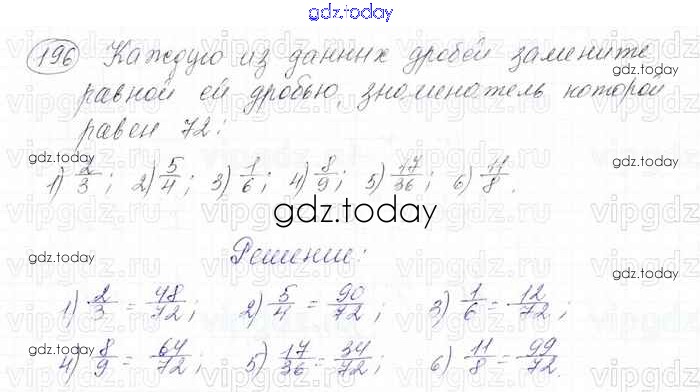 gdz.today
196 Каждую из данных дробей замените
gdz.today
равной ей дробью, знаменатель которой
равен 72:
gdz.today gdz.today
1) 2/3; 2) 5/4; 3) 1/6; 4) 8/9; 5) 17/36; 6) 11/8.
gdz.today
Решение:
gdz.today gdz.today
1) 2/3 = 48/72; 2) 5/4 = 90/72; 3) 1/6 = 12/72;
gdz.today gdz.today
4) 8/9 = 64/72; 5) 17/36 = 34/72; 6) 11/8 = 99/72.